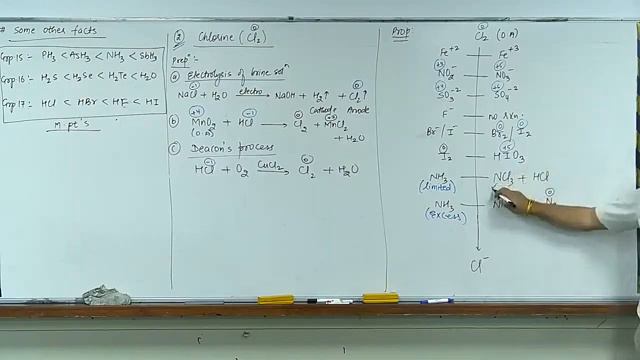 # Some other facts
Grp 15:- PH₃ < AsH₃ < NH₃ < SbH₃
Grp 16:- H₂S < H₂Se < H₂Te < H₂O
Grp 17:- HCl < HBr < HF < HI
M.pt's
② Chlorine (Cl₂) 0
Prepⁿ:
(a) Electrolysis of brine solⁿ
NaCl + H₂O electro → NaOH + H₂↑ + Cl₂↑ 0
Cathode Anode
(b) MnO₂ +4 + HCl -1 → Cl₂ 0 + MnCl₂ +2
(O.A) + H₂O
(c) Deacon's process
HCl -1 + O₂ CuCl₂ → Cl₂ 0 + H₂O
Prop:
0
Cl₂ (O.A)
Fe⁺² Fe⁺³
+3 NO₂⁻ +5 NO₃⁻
+4 SO₃⁻² +6 SO₄⁻²
F⁻ no rxn.
Br⁻/I⁻ Br₂ 0 / I₂ 0
I₂ 0 HIO₃ +5
NH₃ NCl₃ + HCl
(limited)
NH₃
(excess)
Cl⁻